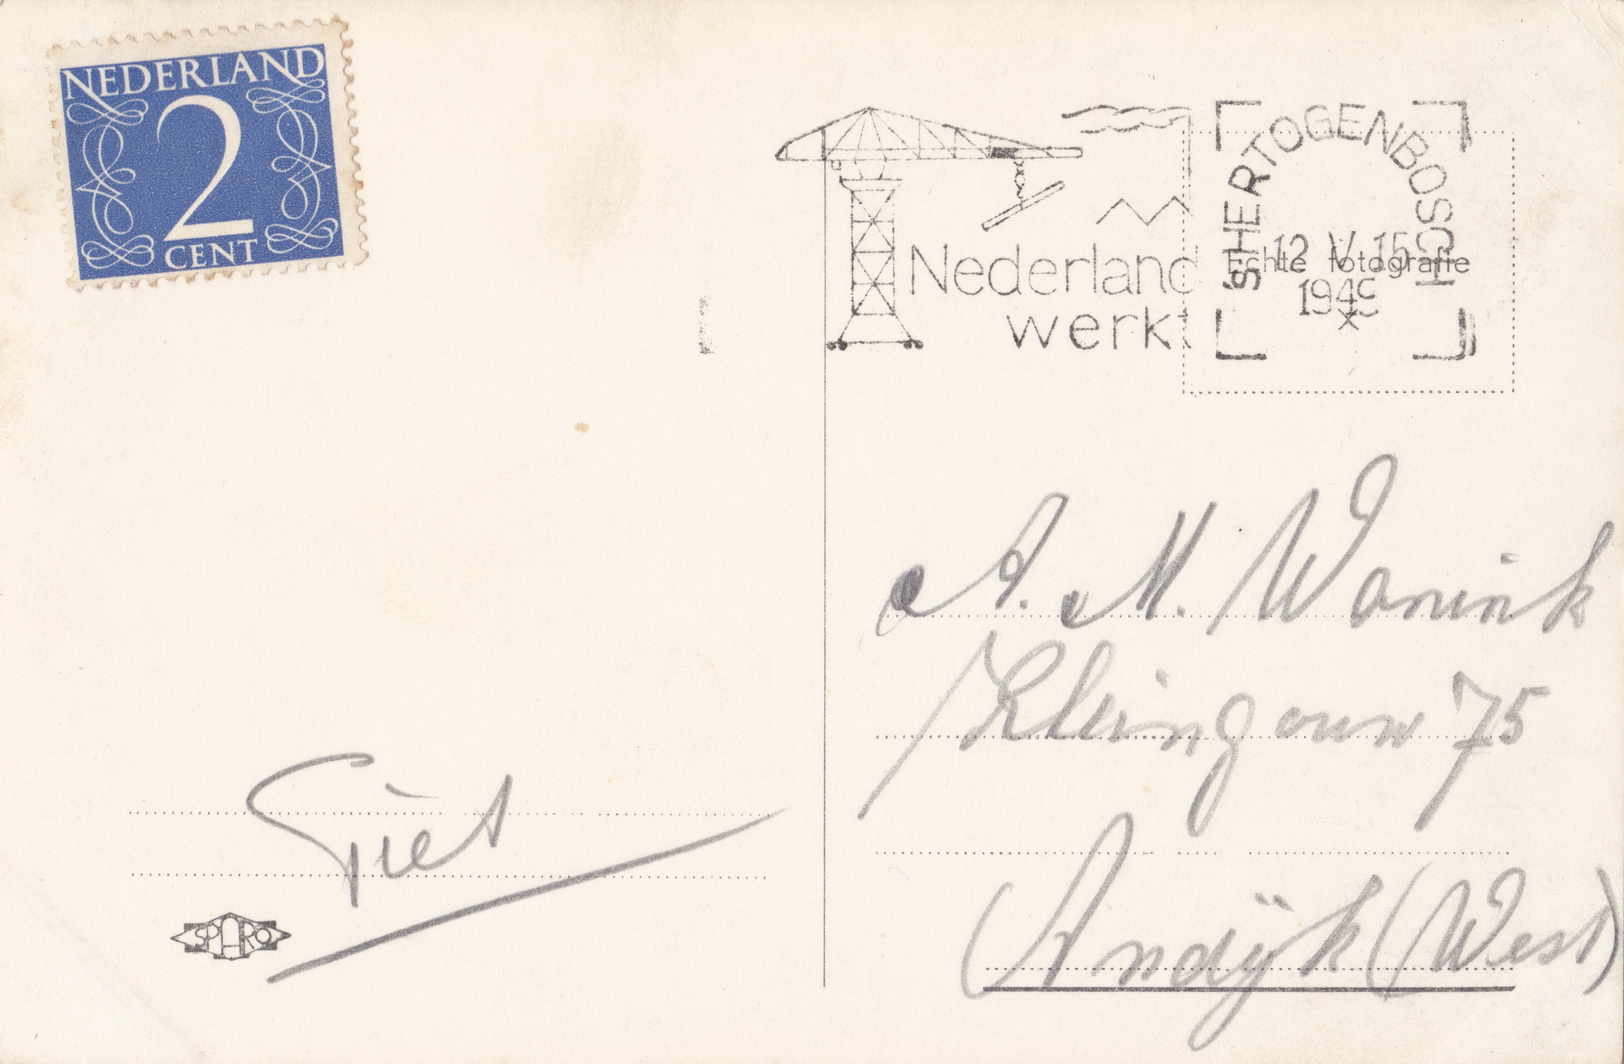 NEDERLAND
2
CENT
Nederland
werkt
'S HERTOGENBOSCH
12 V 15
1949
Echte fotografie
A. M. Wonink
Kleingouw 75
Andijk (West)
Piet
SPARO